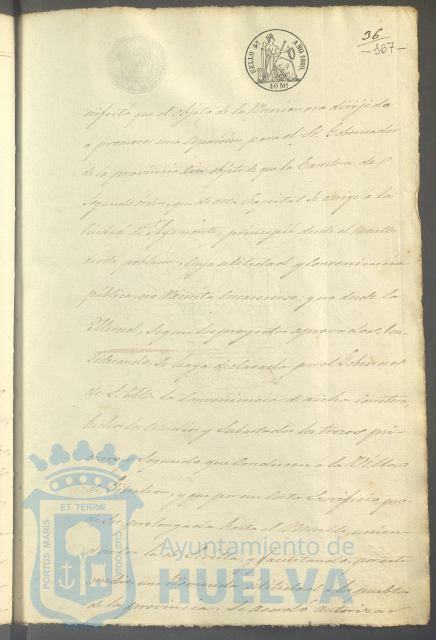 36
167
SELLO 4º AÑO 1860.
40 Ms
nifestó que el objeto de la Reunion era dirijida
a promover una esposicion para el Sr. Gobernador
de la provincia con objeto de que la Carretera de
Segundo orden, que de esta Capital se dirije a la
Ciudad de Ayamonte, principie desde el Muelle
de esta poblacion, cuya utilidad y conveniencia
pública, no necesita encarecerse; y no desde la
Merced, segun los proyectos aprobados. Con
siderando, se haya declarado por el Gobierno
de S. M. la conveniencia de dicha Carretera,
hechos los estudios y subastados los trozos pri-
mero y Segundo que conducen a la Villa
de Gibraleon, y que por un corto Sacrificio pue-
de ser prolongada hasta el Muelle, unien-
y facilitando, por este
medio, una utilidad a los pueblos
de la provincia, se acordó autorizar
PORTUS MARIS ET TERRÆ CUSTODIA
Ayuntamiento de
HUELVA